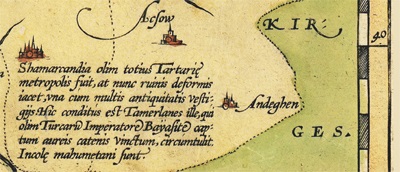 Acsow
KIR
40
Shamarcandia olim totius Tartarię
metropolis fuit, at nunc ruinis deformis
iacet, vna cum multis antiquitatis vesti-
gijs. Hic conditus est Tamerlanes ille, qui
olim Turcarũ Imperatorẽ Bayasitẽ cap-
tum aureis catenis vinctum, circumtulit.
Incolę mahumetani sunt.
Andeghen
GES.